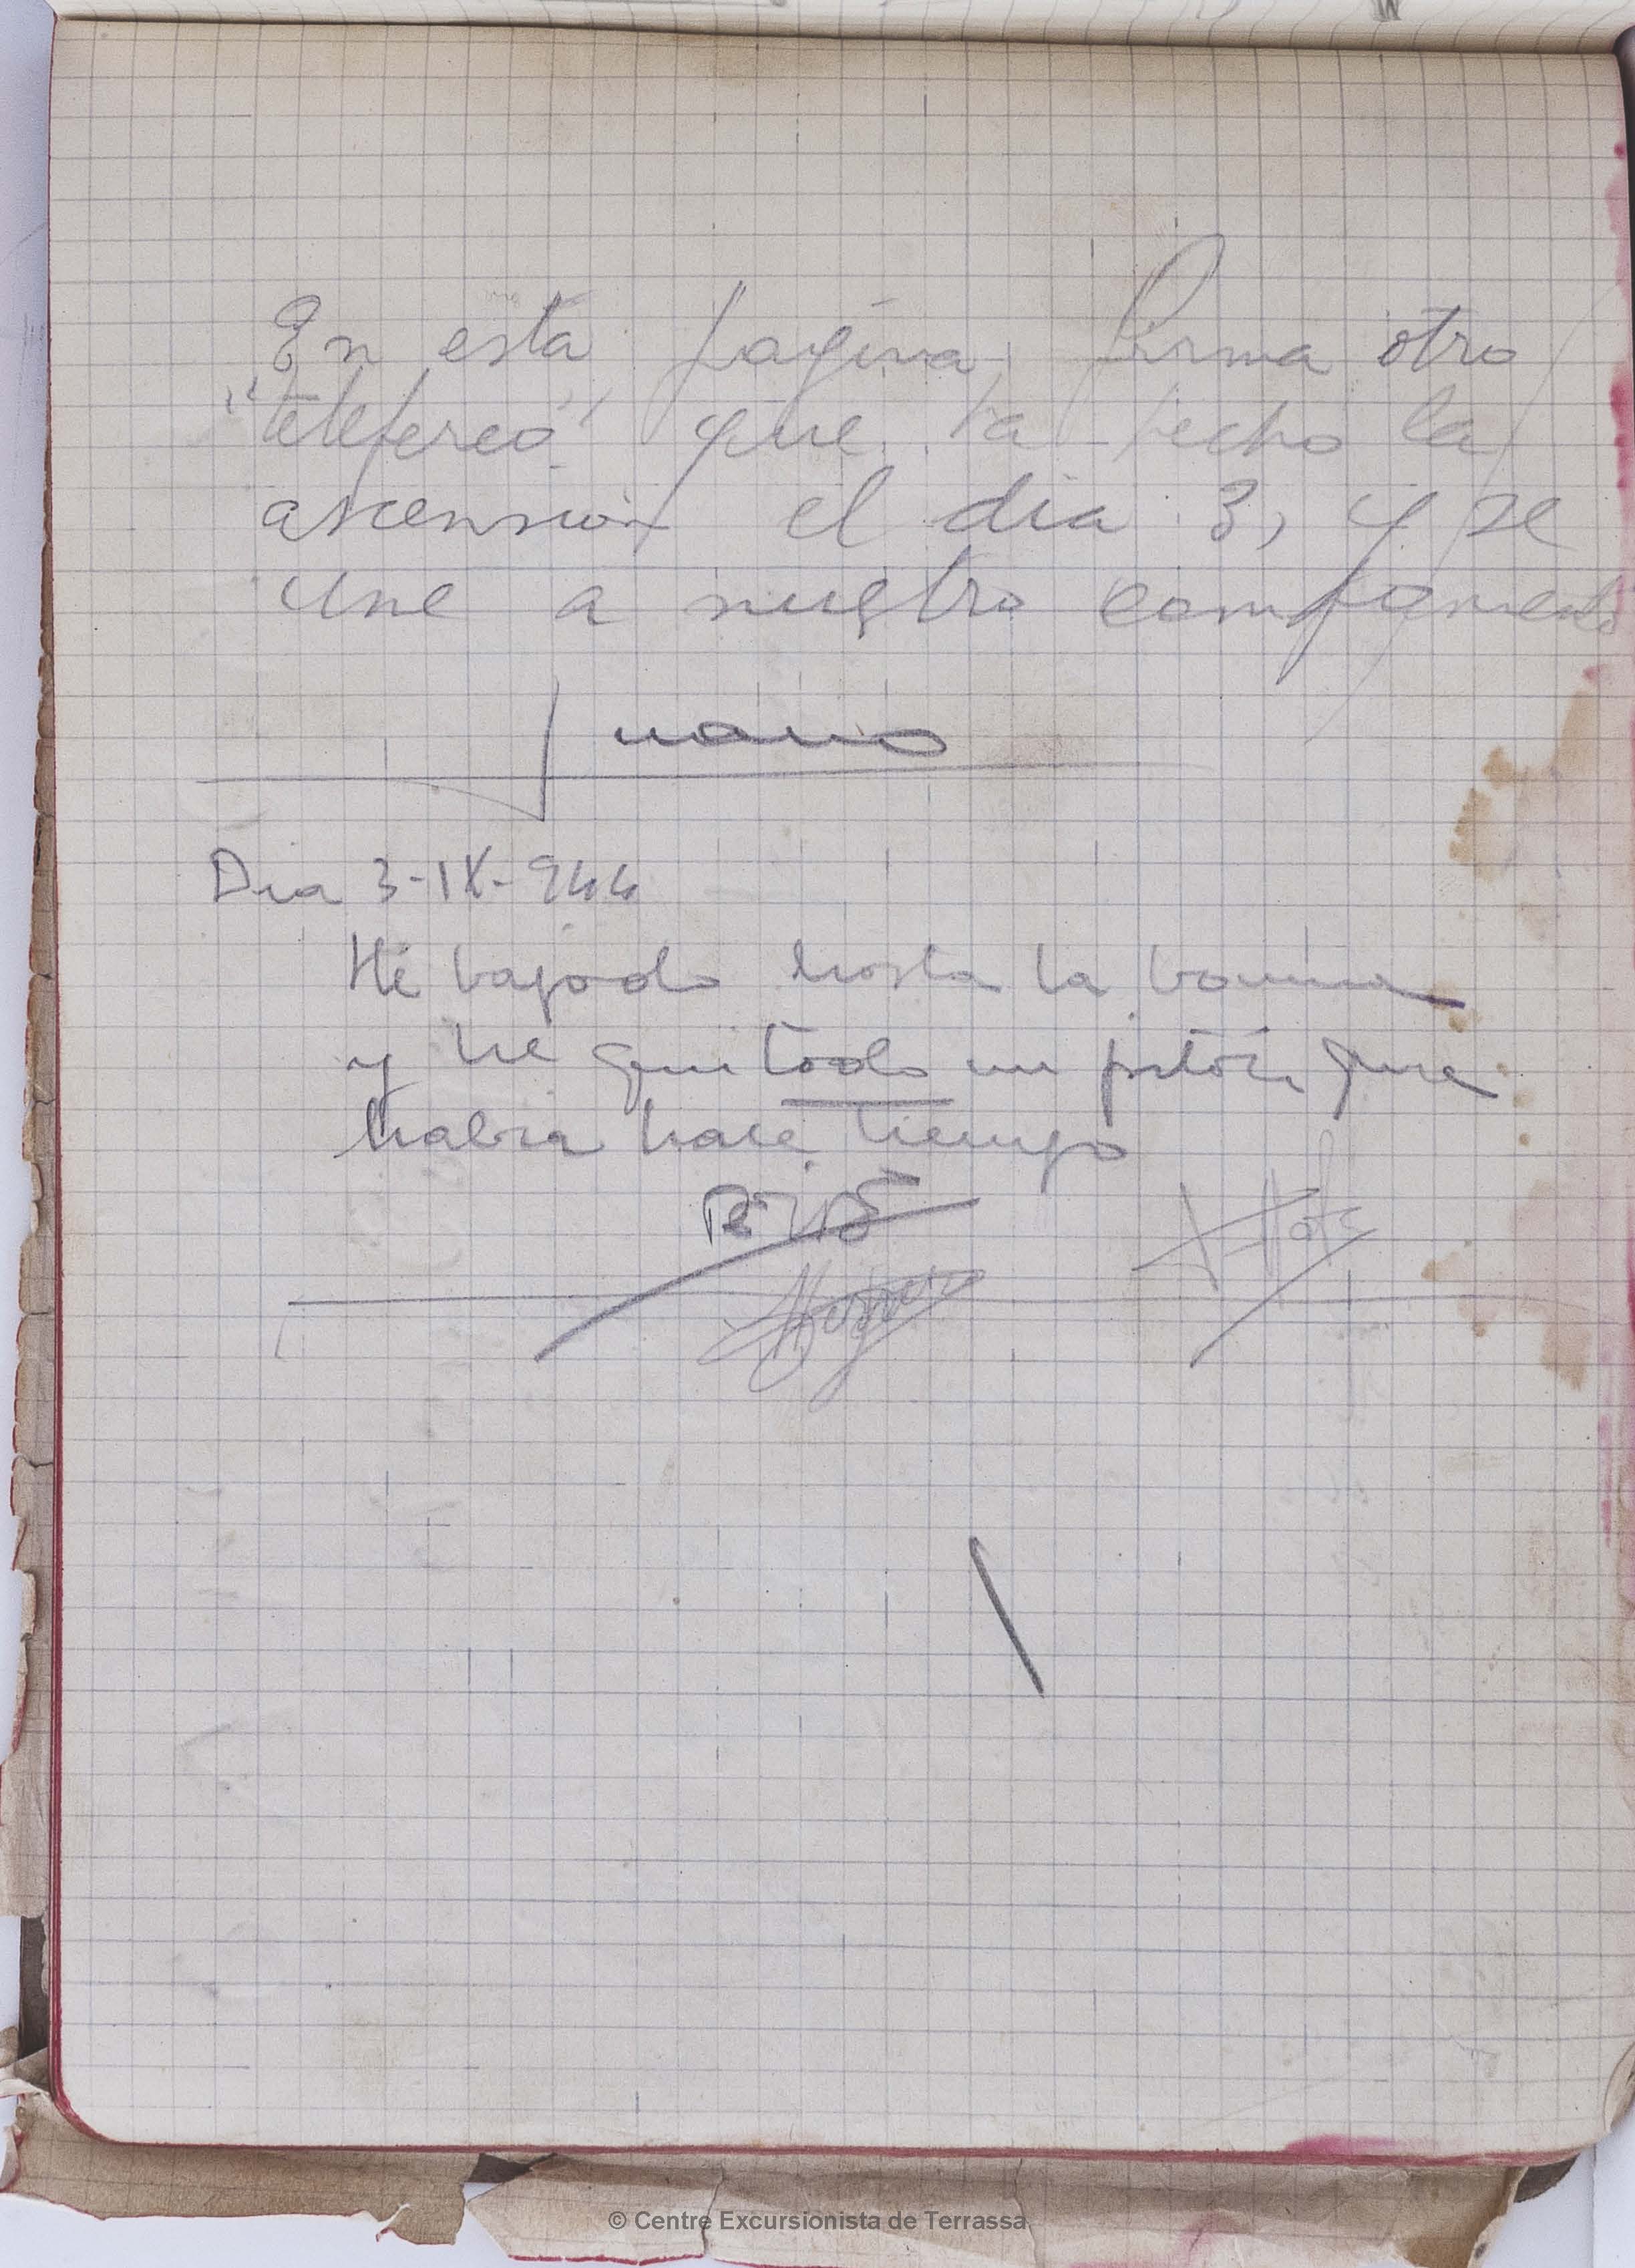 En esta pagina, firma otro
"teleferco" que ha hecho la
ascension el dia 3, y se
une a nuestro campamento
Juano
Dia 3-IX-944
Hé bajado hasta la bauma
y he quitado un pitón que
habia hace tiempo
© Centre Excursionista de Terrassa